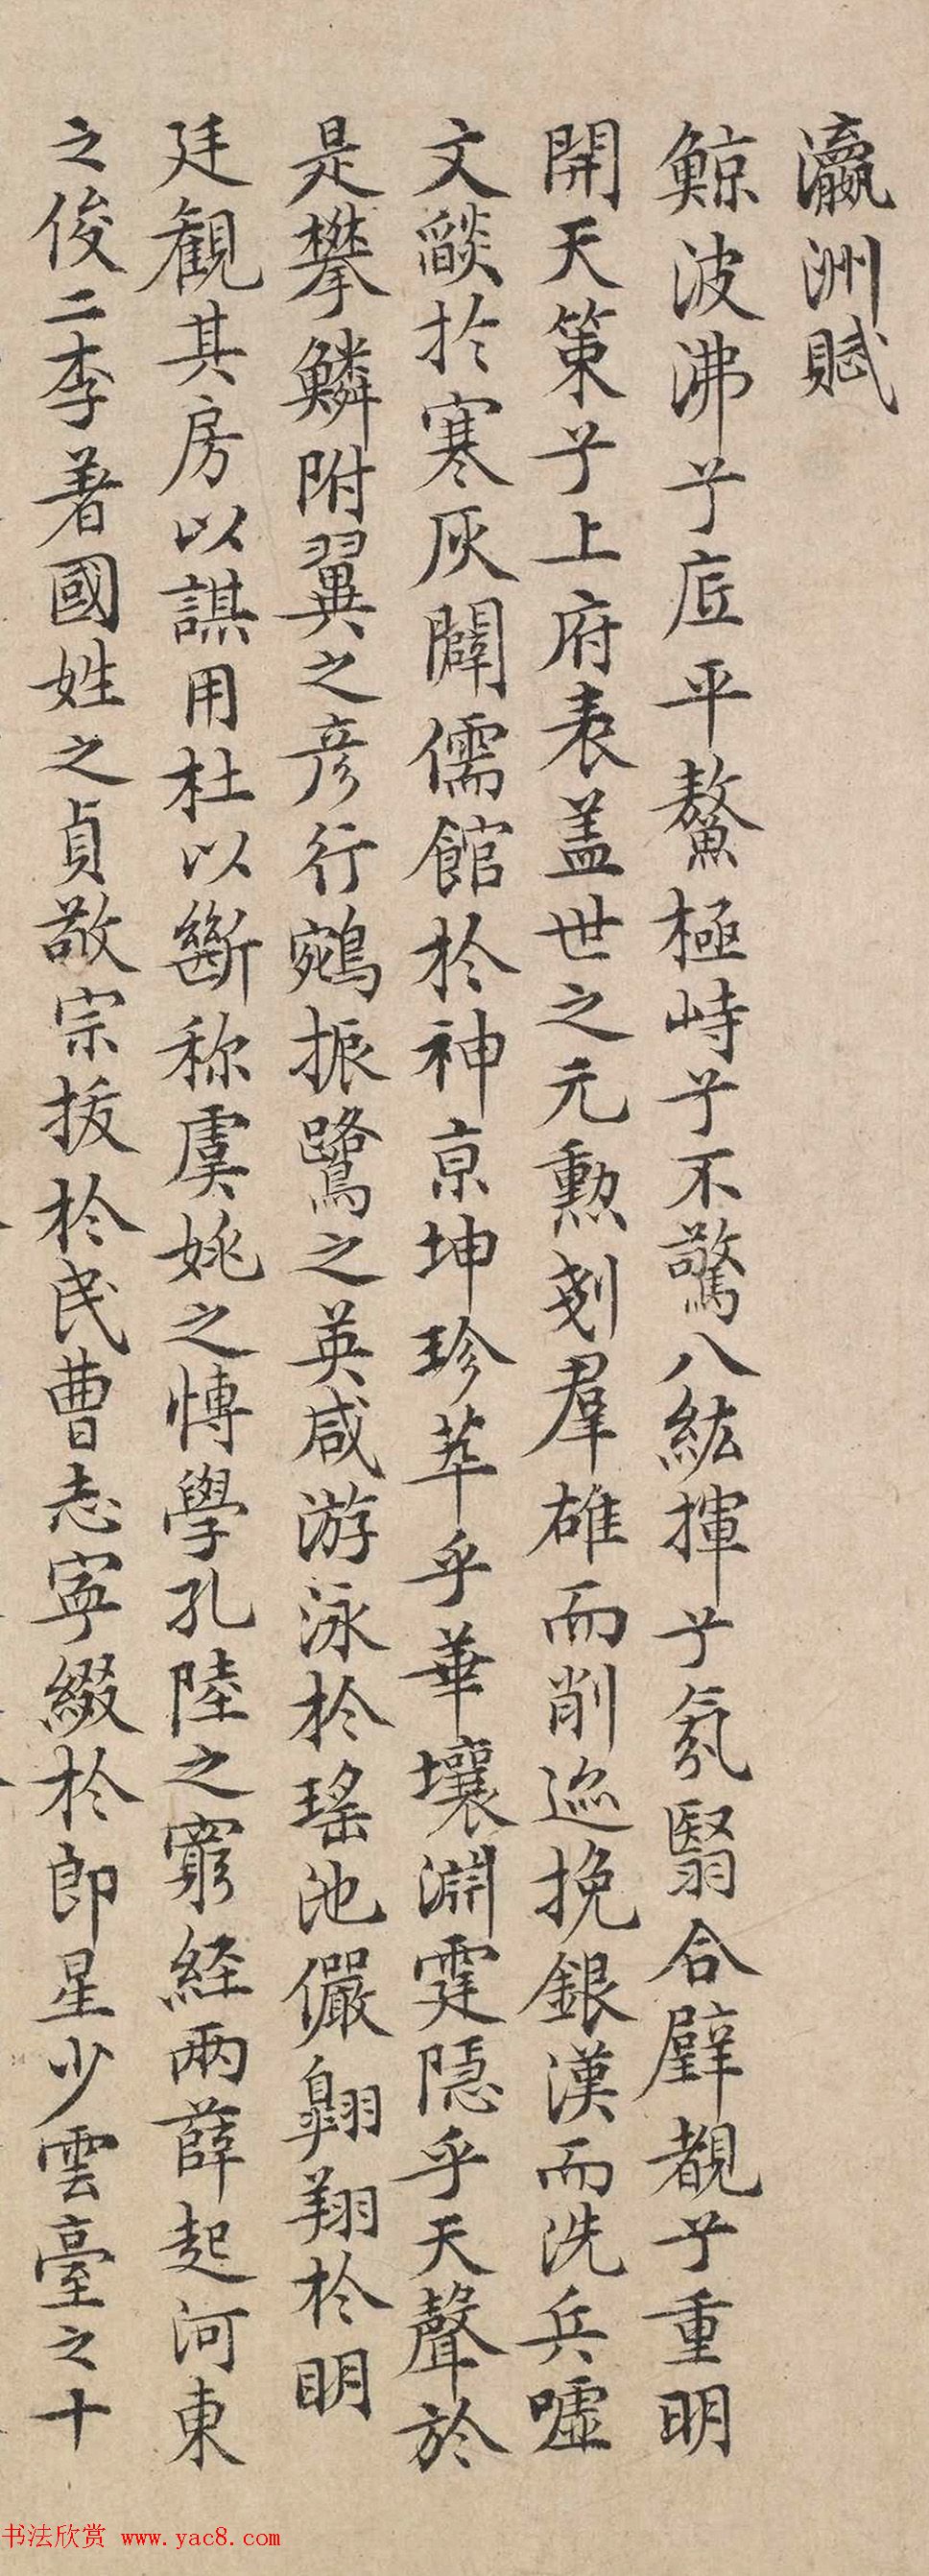 瀛洲賦
鯨波沸兮底平鰲極峙兮不驚八紘揮兮氛翳合璧覩兮重明
開天策兮上府表蓋世之元勳剗羣雄而削迹挽銀漢而洗兵噓
文燄於寒灰闢儒館於神京坤珍萃乎華壤淵霆隱乎天聲於
是攀鱗附翼之彦行鵷振鷺之英咸游泳於瑤池儼翱翔於明
廷觀其房以謀用杜以斷称虞姚之博學孔陸之窮経兩薛起河東
之俊二李著國姓之貞敬宗拔於民曹志寧綴於郎星少雲臺之十
书法欣赏 www.yac8.com